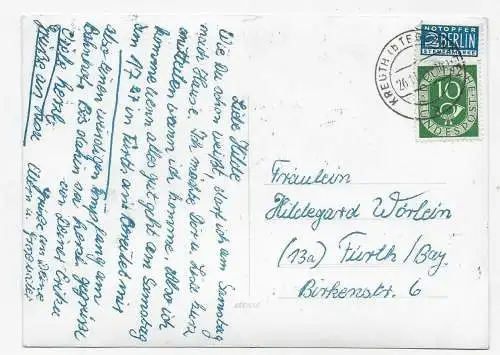 Liebe Hilde
Wie du schon weißt, darf ich am Samstag
nach Hause. Ich möchte Dir u. kurz
mitteilen wann ich komme. Also ich
komme wenn alles gut geht am Samstag
um 17.27 in Fürth an. Bereitet mir
aber einen würdigen Empfang am
Bahnhof. Bis dahin sei herzl. gegrüßt
von Deiner
Viele herzl.
Grüße an
Grüße an Deine
Eltern u. Großvater
NOTOPFER
2 BERLIN
STEUERMARKE
KREUTH üb TEG
10
DEUTSCHE BUNDESPOST
Fräulein
Hildegard Wörlein
(13a) Fürth/Bay.
Birkenstr. 6